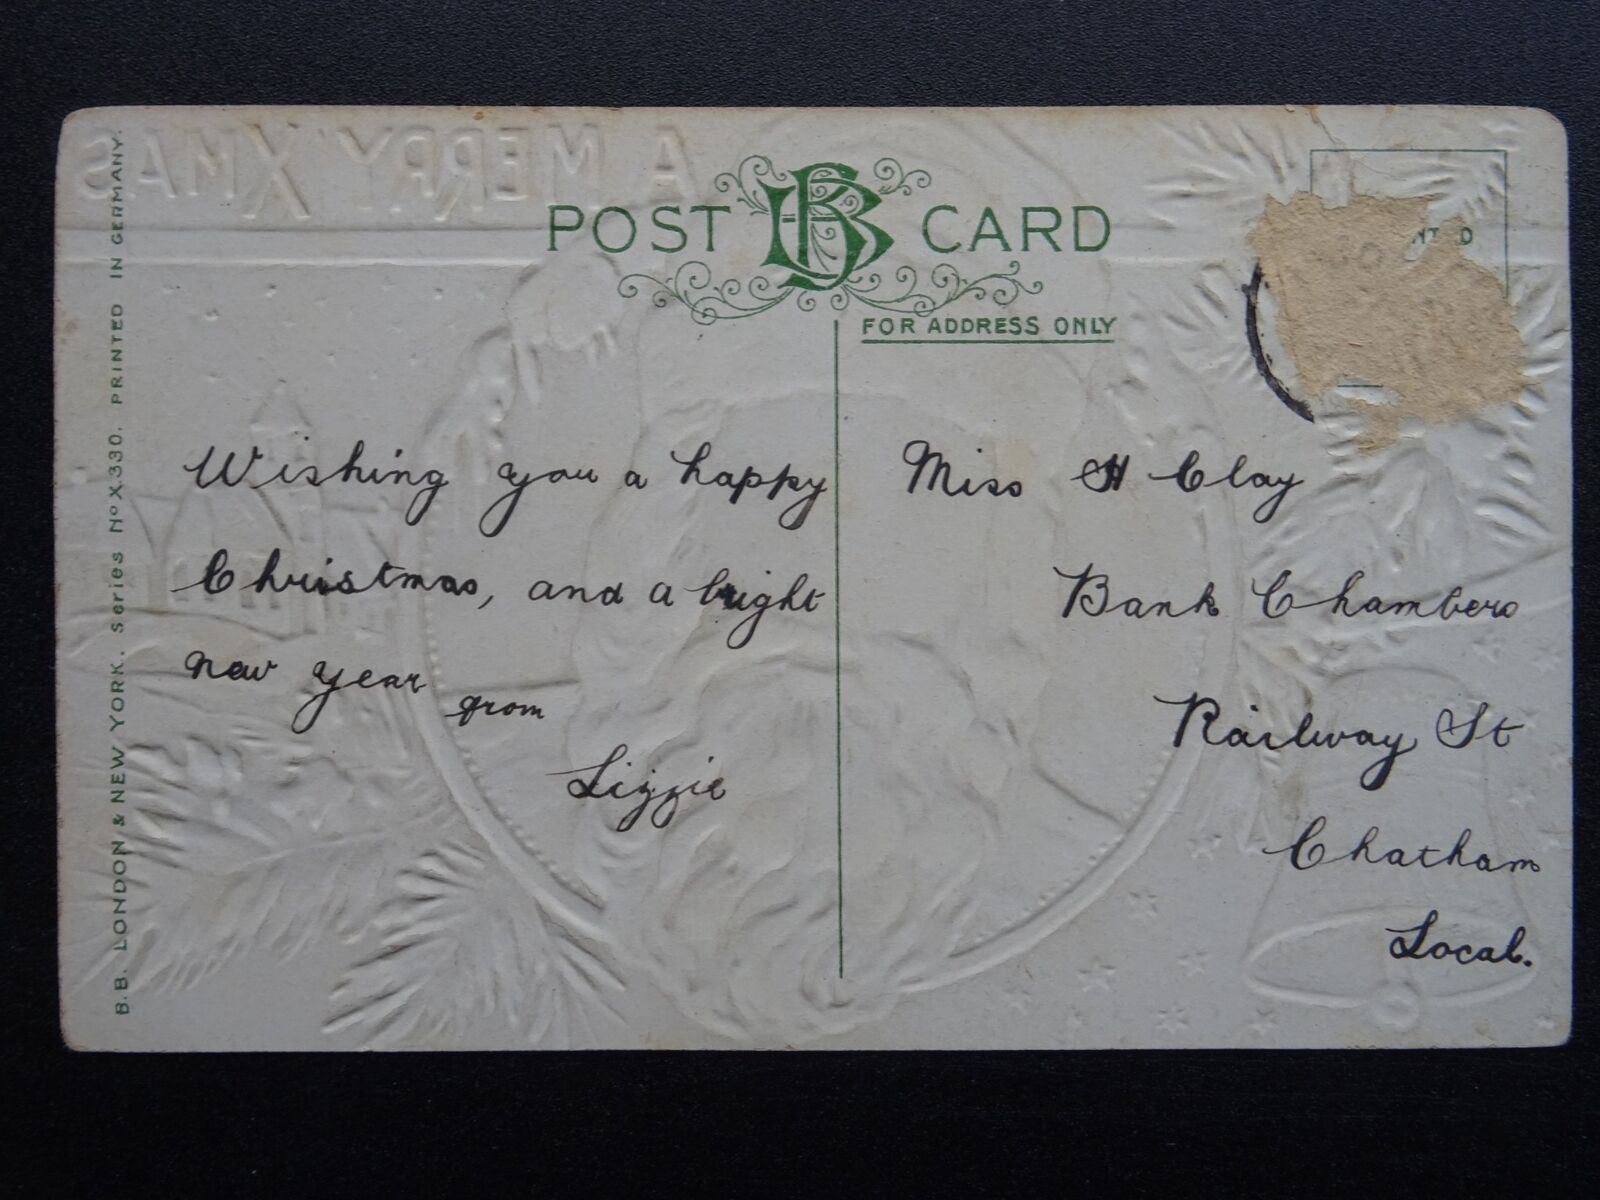 A MERRY XMAS
POST BB CARD
FOR ADDRESS ONLY
B.B. LONDON & NEW YORK. Series No X 330. PRINTED IN GERMANY.
Wishing you a happy
Christmas, and a bright
new year
from
Lizzie
Miss H Clay
Bank Chambers
Railway St
Chatham
Local.